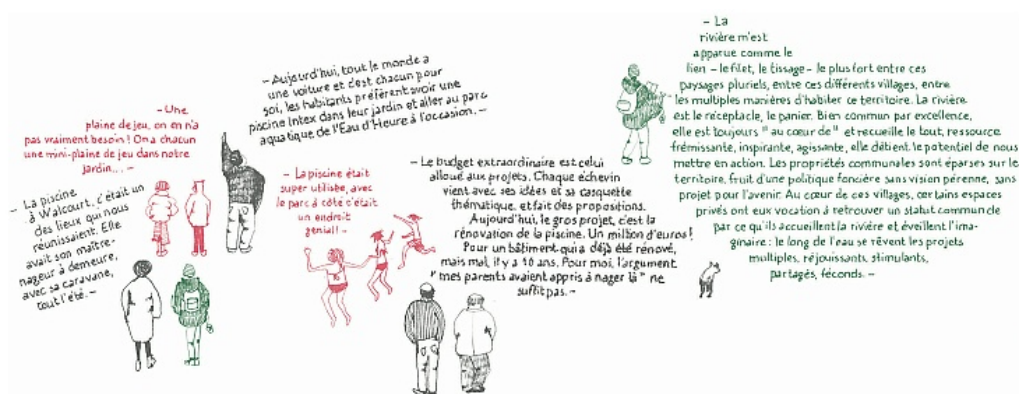 – La piscine
à Walcourt, c'était un
des lieux qui nous
réunissaient. Elle
avait son maître-
nageur à demeure,
avec sa caravane,
tout l'été. –
– Une
plaine de jeu, on en n'a
pas vraiment besoin ! On a chacun
une mini-plaine de jeu dans notre
jardin... –
– Aujourd'hui, tout le monde a
une voiture et c'est chacun pour
soi, les habitants préfèrent avoir une
piscine Intex dans leur jardin et aller au parc
aquatique de l'Eau d'Heure à l'occasion. –
– La piscine était
super utilisée, avec
le parc à côté c'était
un endroit
genial ! –
– Le budget extraordinaire est celui
alloué aux projets. Chaque échevin
vient avec ses idées et sa casquette
thématique, et fait des propositions.
Aujourd'hui, le gros projet, c'est la
rénovation de la piscine. Un million d'euros !
Pour un bâtiment qui a déjà été rénové,
mais mal, il y a 10 ans. Pour moi, l'argument
" mes parents avaient appris à nager là " ne
suffit pas. –
– La
rivière m'est
apparue comme le
lien – le filet, le tissage – le plus fort entre ces
paysages pluriels, entre ces différents villages, entre
les multiples manières d'habiter ce territoire. La rivière
est le réceptacle, le panier. Bien commun par excellence,
elle est toujours " au cœur de " et recueille le tout, ressource
frémissante, inspirante, agissante, elle détient le potentiel de nous
mettre en action. Les propriétés communales sont éparses sur le
territoire, fruit d'une politique foncière sans vision pérenne, sans
projet pour l'avenir. Au cœur de ces villages, certains espaces
privés ont eux vocation à retrouver un statut commun de
par ce qu'ils accueillent la rivière et éveillent l'ima-
ginaire : le long de l'eau se rêvent les projets
multiples, réjouissants, stimulants,
partagés, féconds. –